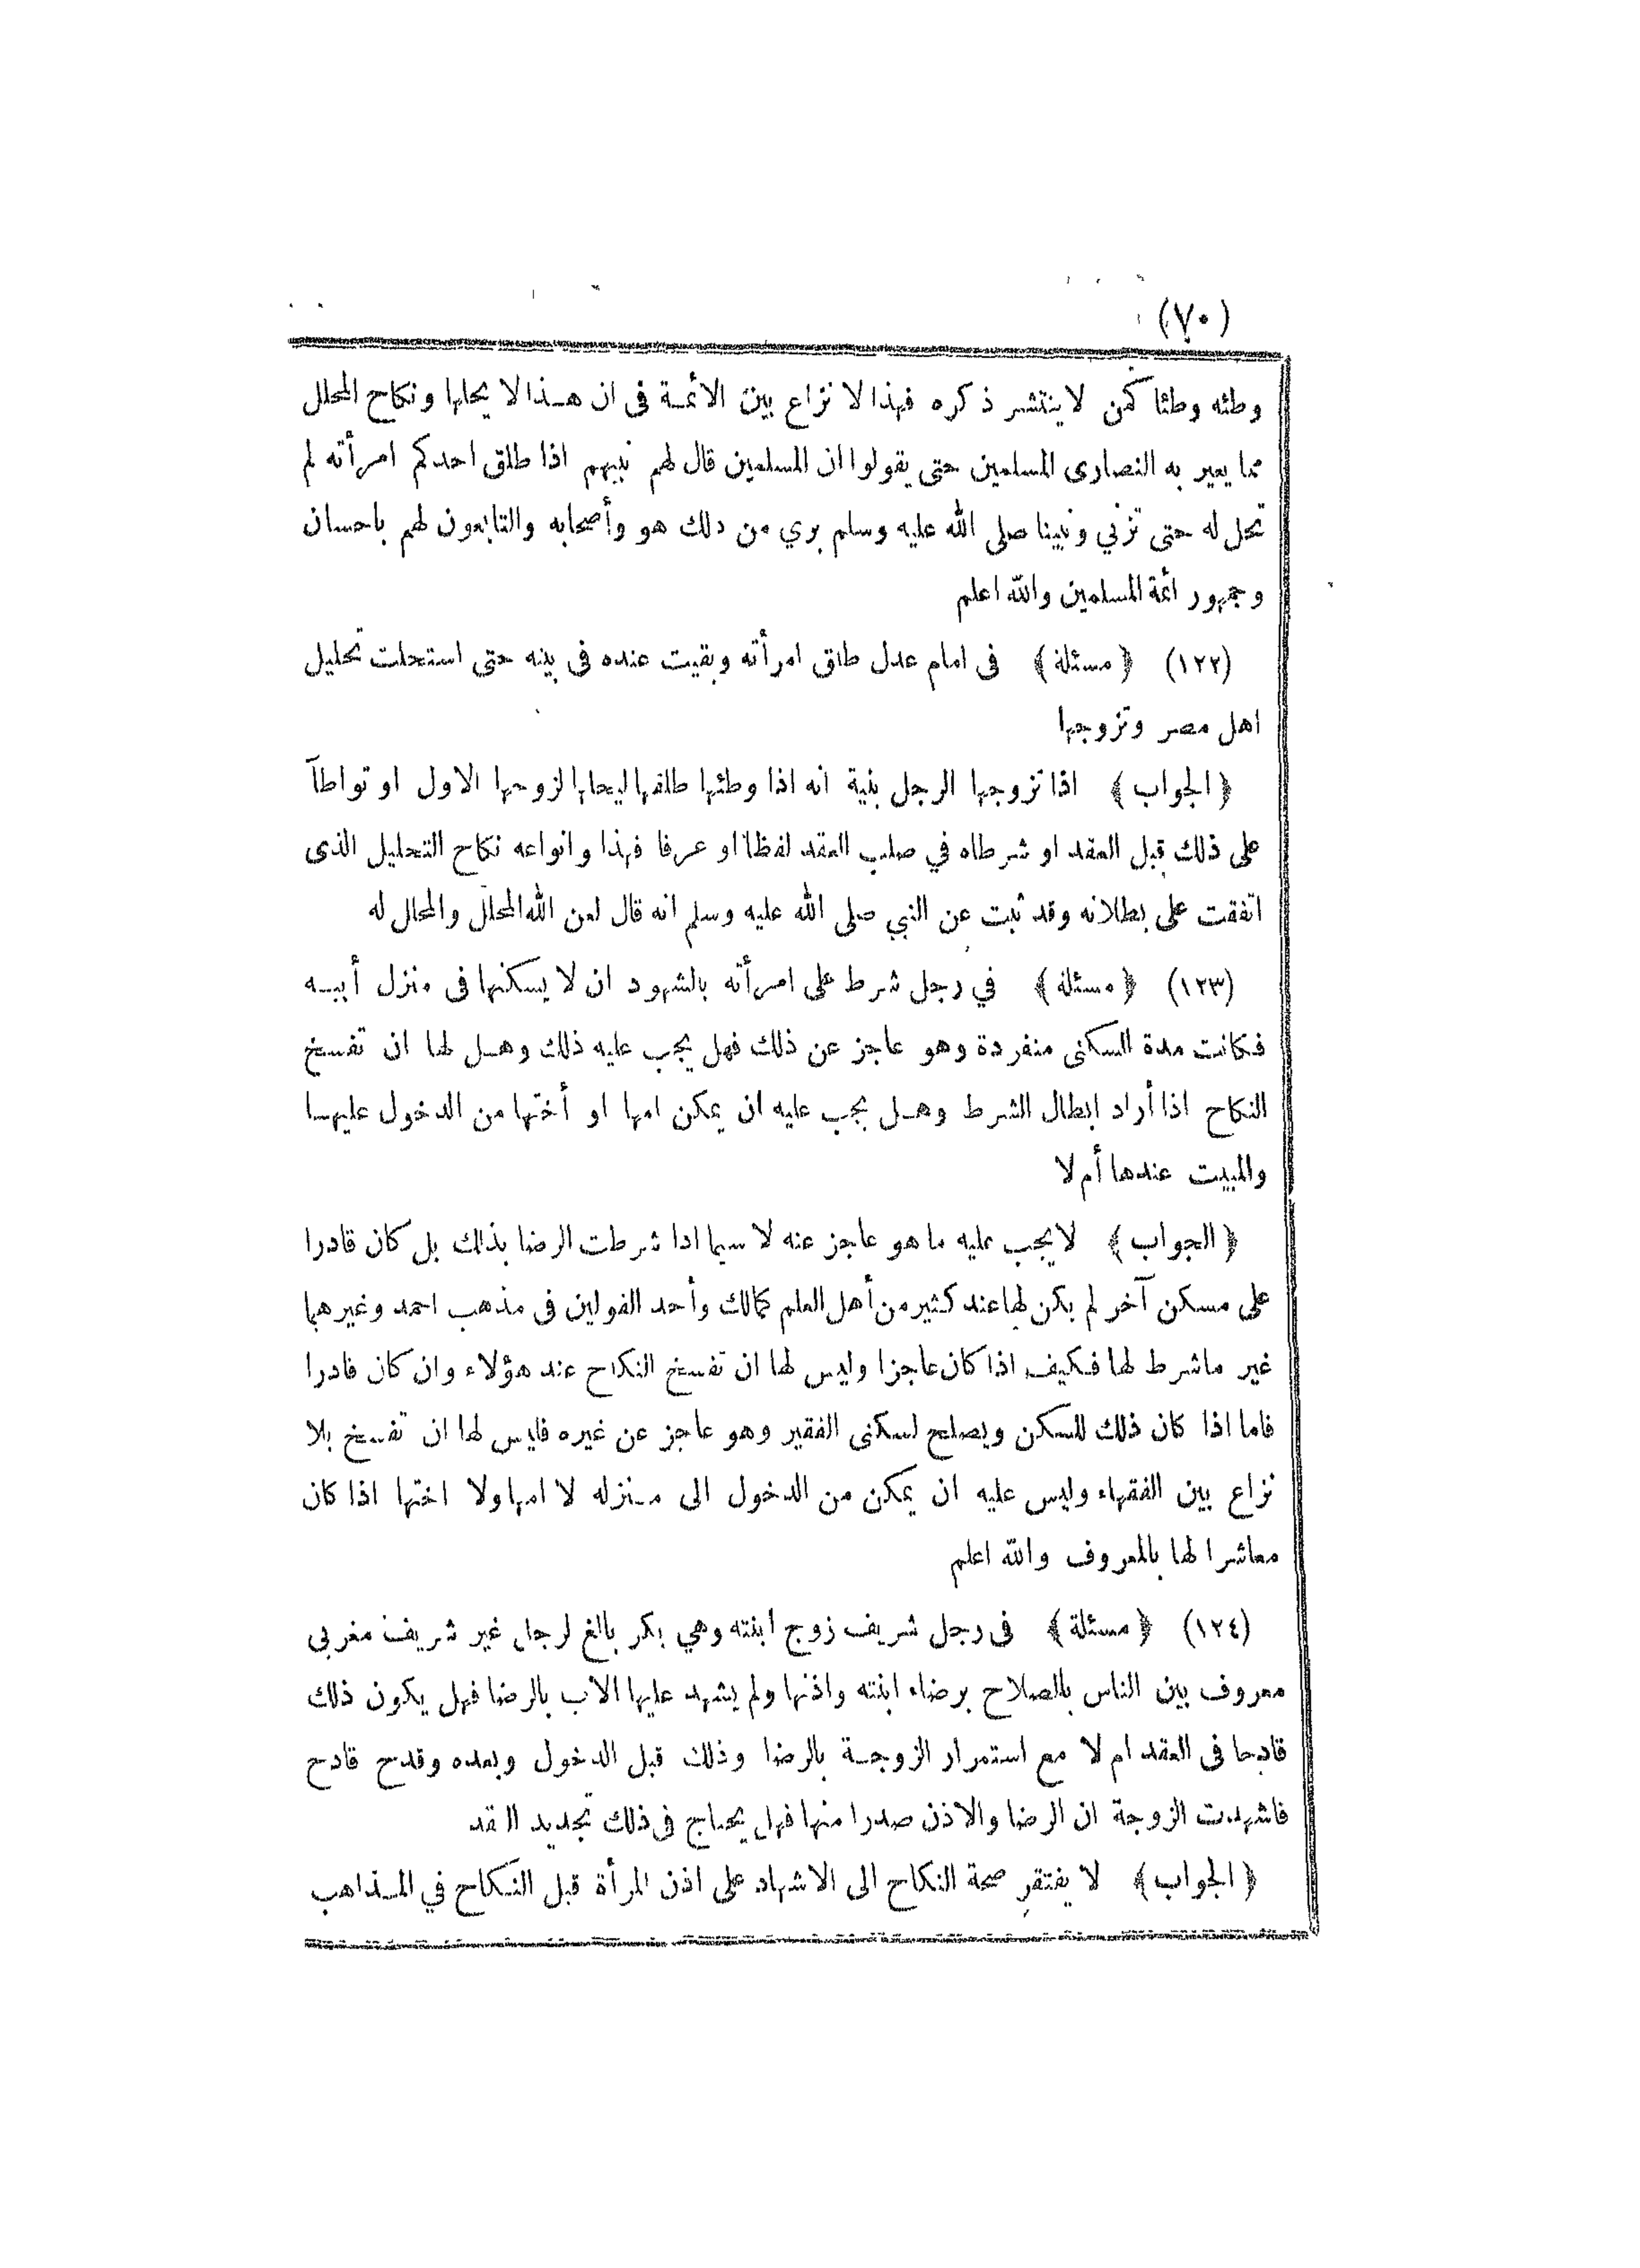 (٧٠)
وطئه وطئا كمن لا ينتشر ذكره فهذا لا نزاع بين الائمة فى ان هذا لا يحلها ونكاح المحلل
مما يعير به النصارى المسلمين حتى يقولوا ان المسلمين قال لهم نبيهم اذا طلق احدكم امرأته لم
تحل له حتى تزني ونبينا صلى الله عليه وسلم بري من ذلك هو وأصحابه والتابعون لهم باحسان
وجمهور ائمة المسلمين والله اعلم
(١٢٢) ﴿ مسئلة ﴾ فى امام عدل طلق امرأته وبقيت عنده فى بيته حتى استحلت تحليل
اهل مصر وتزوجها
﴿ الجواب ﴾ اذا تزوجها الرجل بنية انه اذا وطئها طلقها ليحلها لزوجها الاول او تواطآ
على ذلك قبل العقد او شرطاه في صلب العقد لفظا او عرفا فهذا وانواعه نكاح التحليل الذى
اتفقت على بطلانه وقد ثبت عن النبي صلى الله عليه وسلم انه قال لعن الله المحلل والمحلل له
(١٢٣) ﴿ مسئلة ﴾ في رجل شرط على امرأته بالشهود ان لا يسكنها فى منزل أبيه
فكانت مدة السكنى منفردة وهو عاجز عن ذلك فهل يجب عليه ذلك وهل لها ان تفسخ
النكاح اذا أراد ابطال الشرط وهل يجب عليه ان يمكن امها او أختها من الدخول عليها
والمبيت عندها أم لا
﴿ الجواب ﴾ لا يجب عليه ما هو عاجز عنه لا سيما اذا شرطت الرضا بذلك بل كان قادرا
على مسكن آخر لم يكن لها عند كثير من أهل العلم كمالك وأحد القولين فى مذهب احمد وغيرهما
غير ما شرط لها فكيف اذا كان عاجزا وليس لها ان تفسخ النكاح عند هؤلاء وان كان قادرا
فاما اذا كان ذلك للسكن ويصلح لسكنى الفقير وهو عاجز عن غيره فليس لها ان تفسخ بلا
نزاع بين الفقهاء وليس عليه ان يمكن من الدخول الى منزله لا امها ولا اختها اذا كان
معاشرا لها بالمعروف والله اعلم
(١٢٤) ﴿ مسئلة ﴾ فى رجل شريف زوج ابنته وهي بكر بالغ لرجل غير شريف مغربى
معروف بين الناس بالصلاح برضاء ابنته واذنها ولم يشهد عليها الاب بالرضا فهل يكون ذلك
قادحا فى العقد ام لا مع استمرار الزوجة بالرضا وذلك قبل الدخول وبعده وقدح قادح
فاشهدت الزوجة ان الرضا والاذن صدرا منها فهل يحتاج فى ذلك تجديد العقد
﴿ الجواب ﴾ لا يفتقر صحة النكاح الى الاشهاد على اذن المرأة قبل النكاح في المذاهب